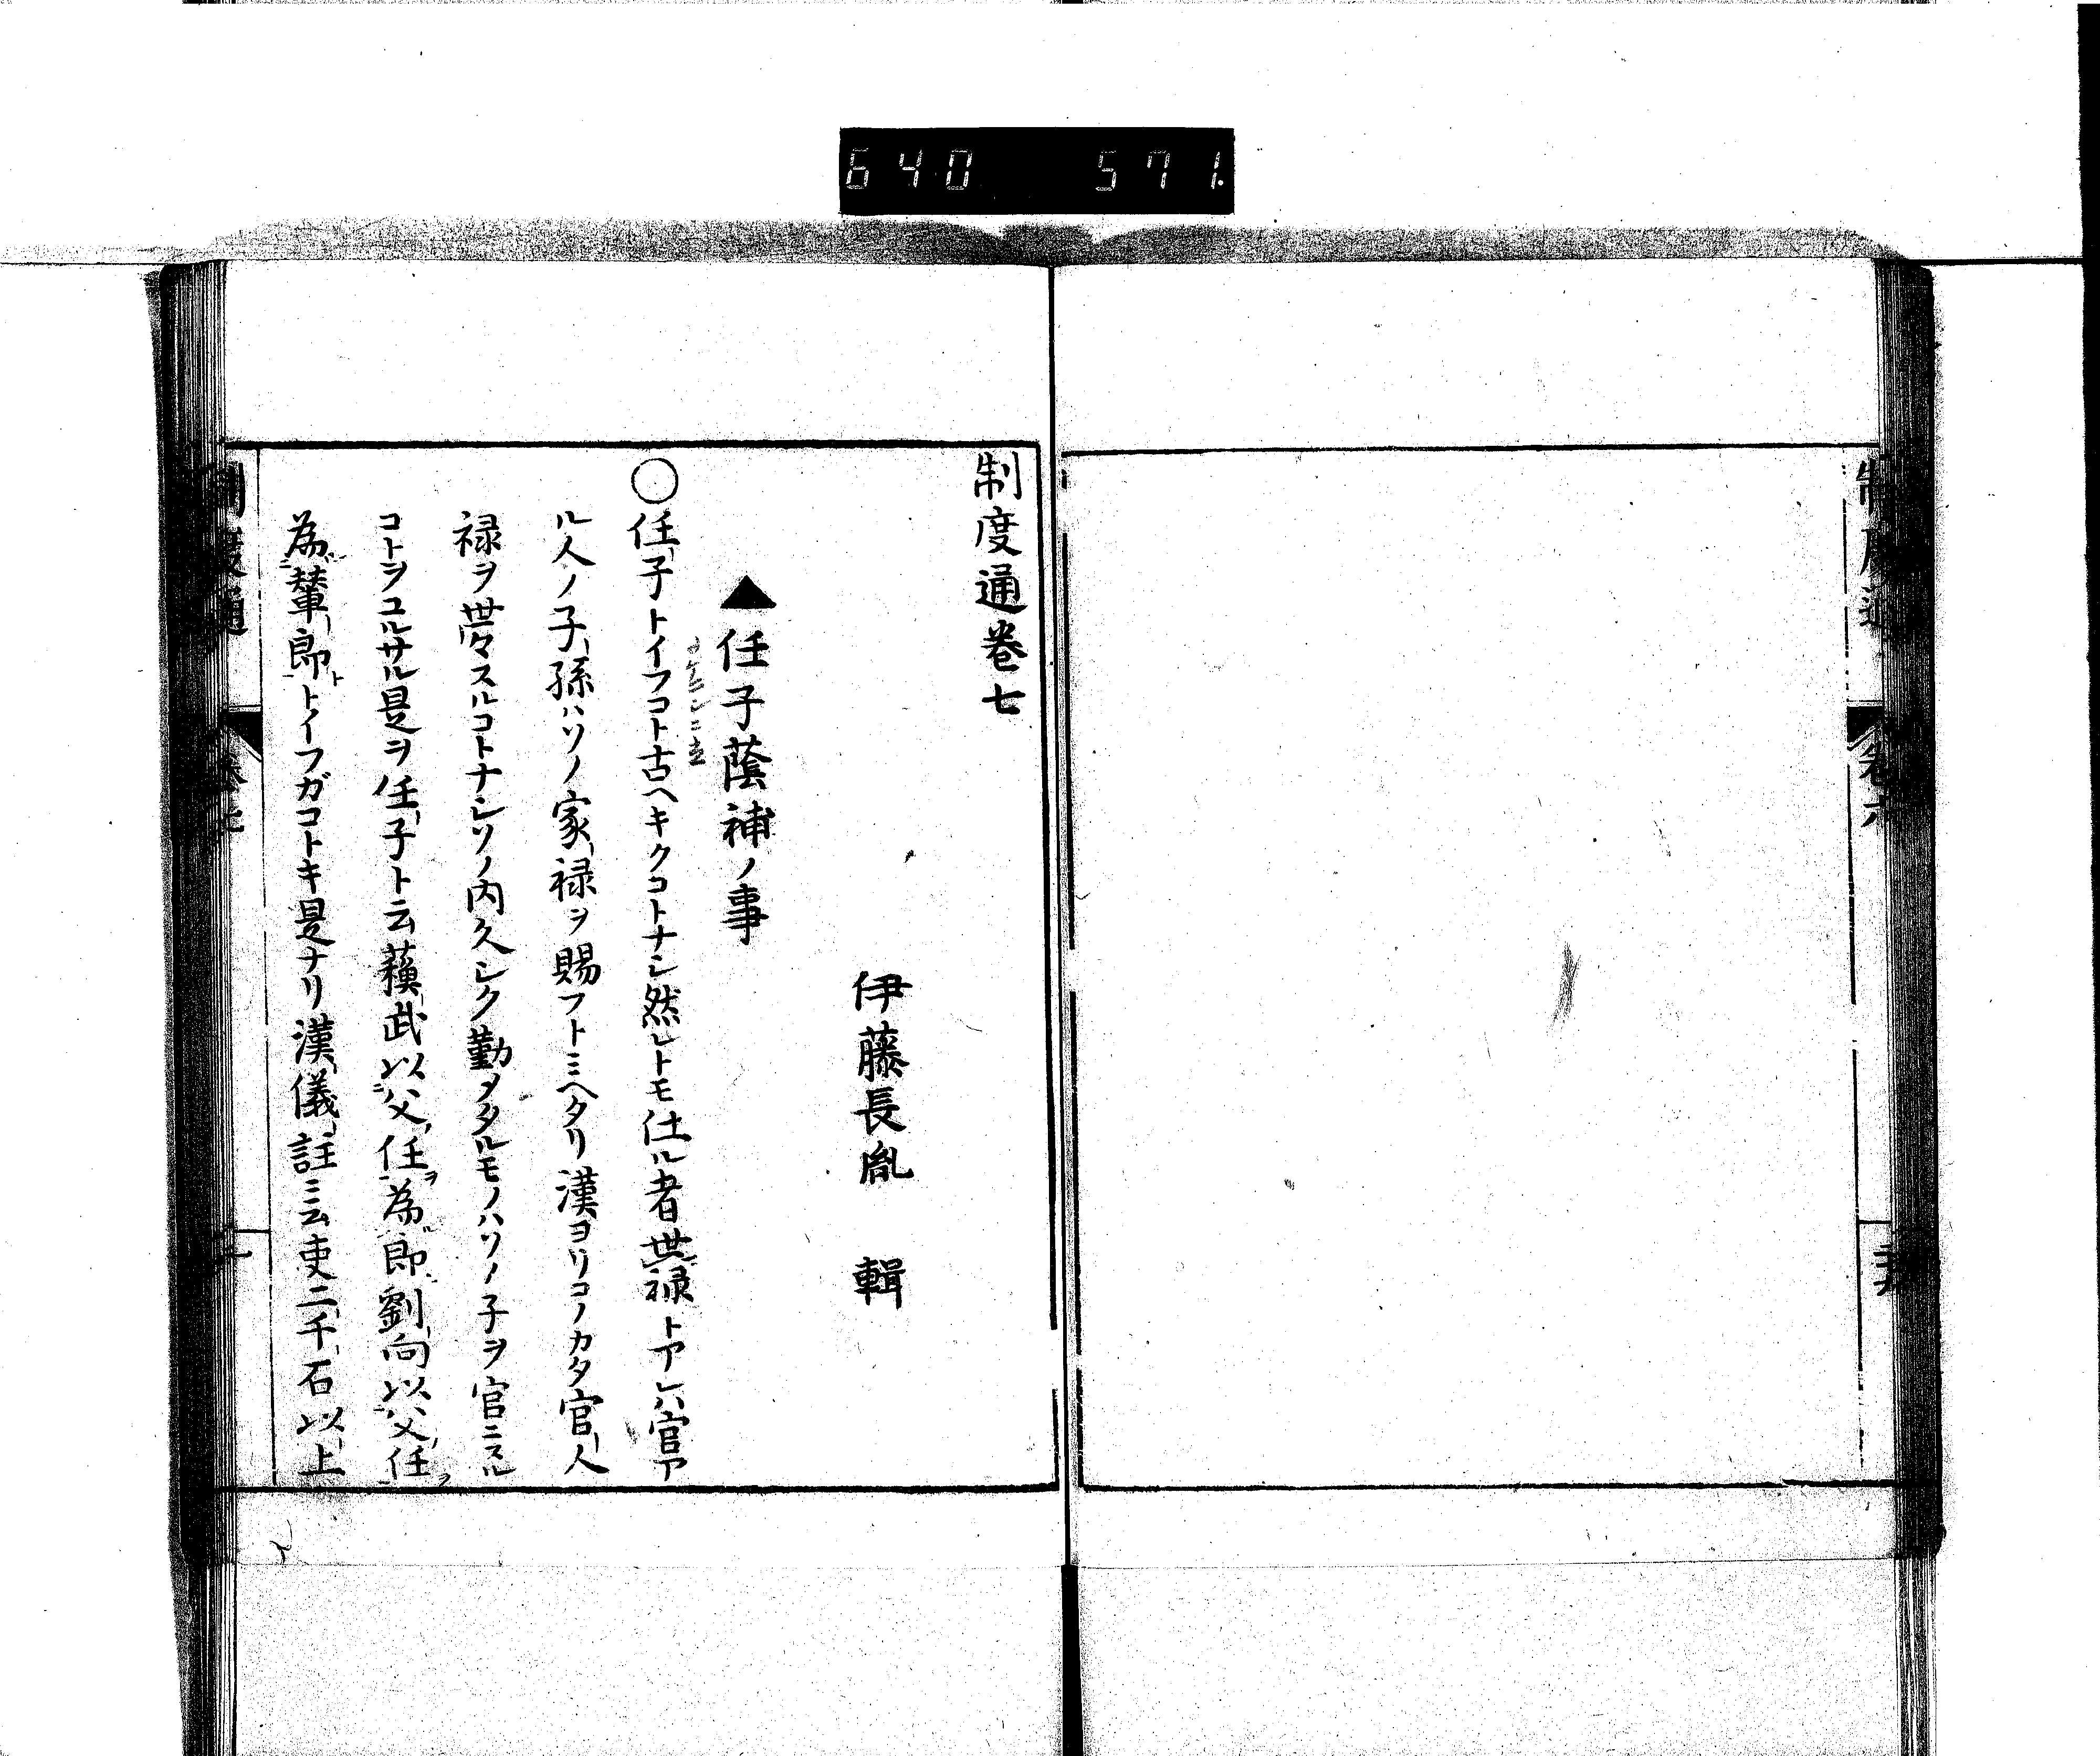 640 571.
制度通卷七
伊藤長胤 輯
▲任子蔭補ノ事
○任子トイフコト古ヘキクコトナシ然レトモ仕ル者世禄トアレハ官ア
ル人ノ子孫ハソノ家禄ヲ賜フトミヘタリ漢ヨリコノカタ官人
禄ヲ世々スルコトナシソノ内久シク勤メタルモノハソノ子ヲ官ニスル
コトヲユルサル是ヲ任子ト云蘓武以父任為郎劉向以父任
為輦郎トイフガコトキ是ナリ漢儀註ニ云吏二千石以上
制度通 卷七 一
制度通 卷六